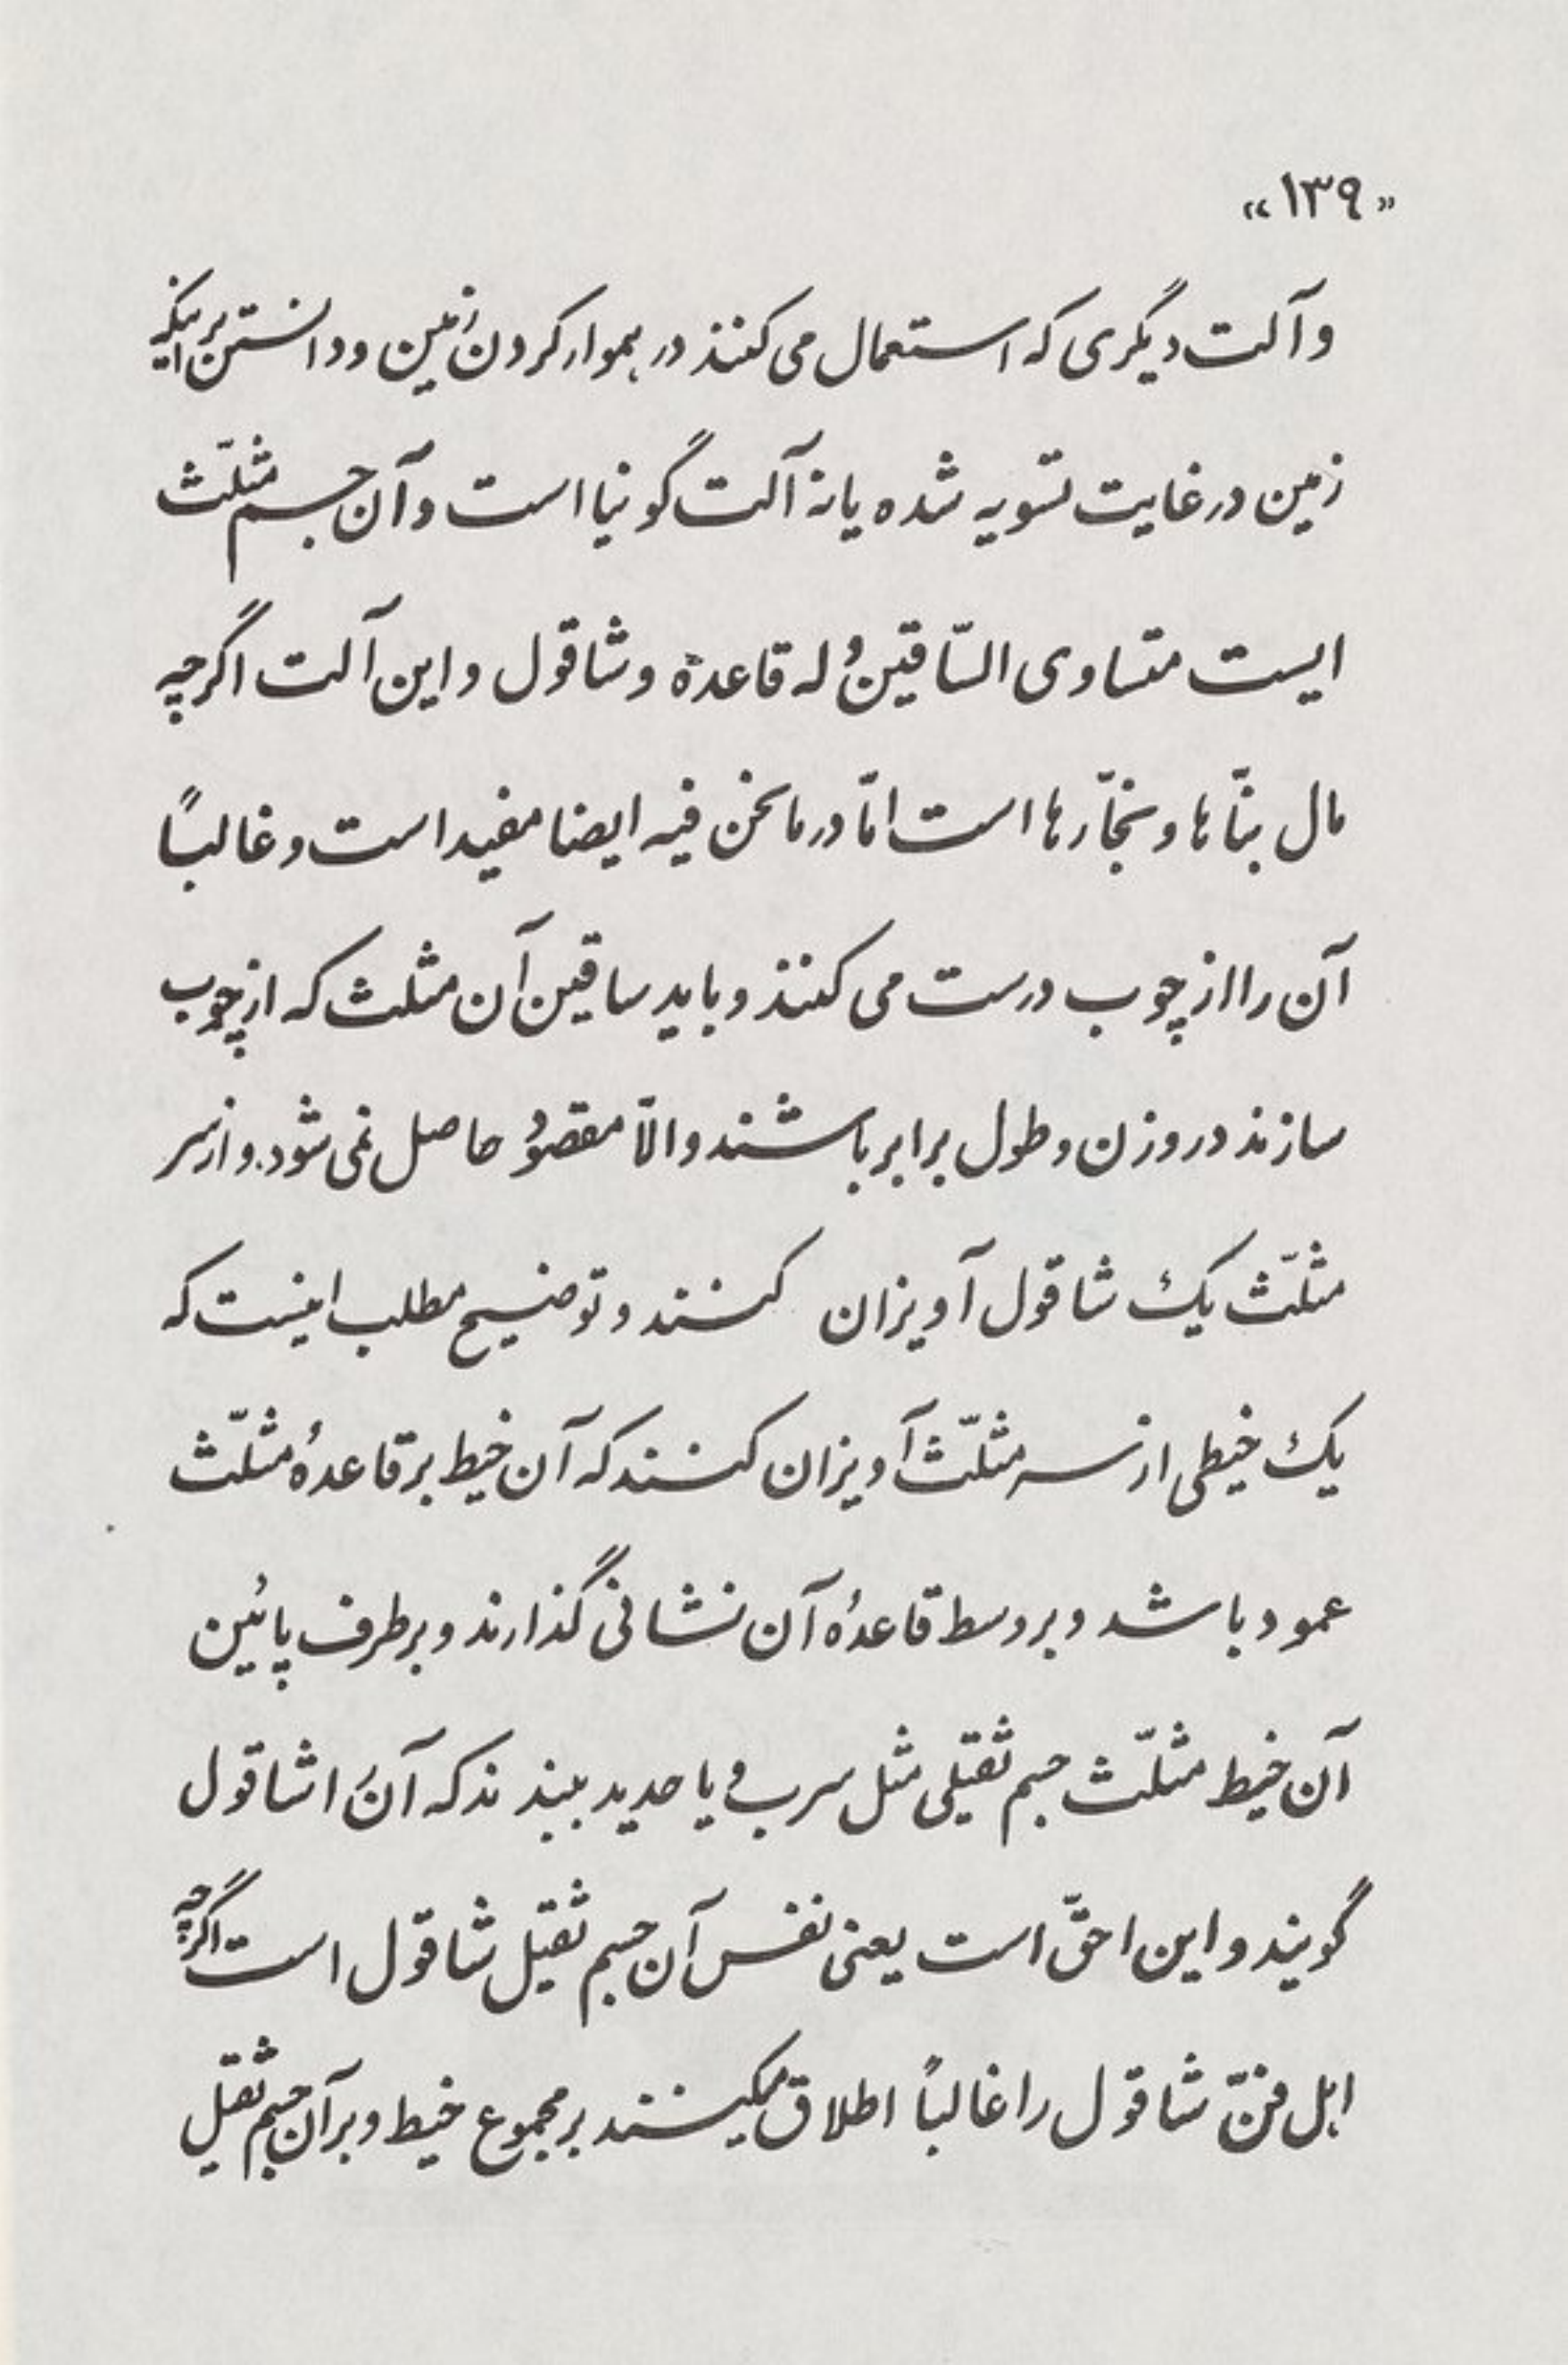 «۱۳۹»
و آلت دیگری که استعمال می کنند در هموار کردن زمین و دانستن براینکه
زمین در غایت تسویه شده یا نه آلت گونیا است و آن جسم مثلّث
ایست متساوی السّاقین وُله قاعدة و شاقول و این آلت اگرچه
مال بنّا ها و نجّار ها است امّا در ما نحن فیه ایضا مفید است و غالباً
آن را از چوب درست می کنند و باید ساقین آن مثلث که از چوب
سازند در وزن و طول برابر باشند و الاّ مقصوُد حاصل نمی شود. و از سر
مثلّث یک شاقول آویزان کنند و توضیح مطلب اینست که
یک خیطی از سر مثلّث آویزان کنند که آن خیط بر قاعدهٔ مثلّث
عمود باشد و بر وسط قاعدهٔ آن نشانی گذارند و بر طرف پائین
آن خیط مثلّث جسم ثقیلی مثل سرب و یا حدید ببندند که آنَ را شاقول
گویند و این احقّ است یعنی نفس آن جسم ثقیل شاقول است اگرچه
اهل فنّ شاقول را غالباً اطلاق میکنند بر مجموع خیط و بر آن جسم ثقیل